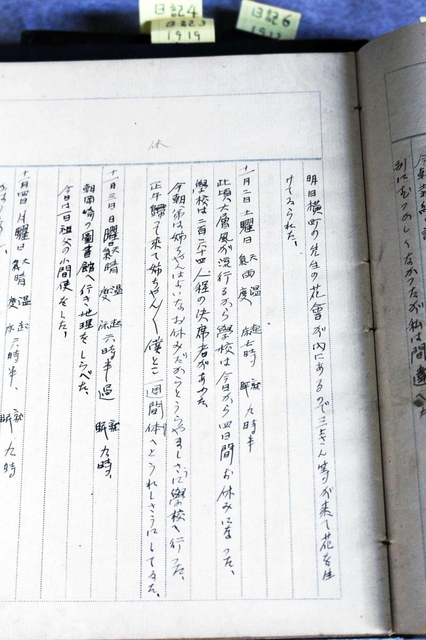 日記4
日記3
1919
日記6
別にむつかしくなかつたが私は間違へた
明日横町の先生の花會が内にあるので三上さん等が来て花を生
けてゐられた、
十一月二日土曜日 天気雨 温度 起床七時 就眠九時半
此頃大層風が流行るから學校は今日から四日間お休みになつた、
學校は二百二三十四人程の欠席者があつた
今朝弟は姉ちやんはよいなお休みだからとうらやましさうに學校へ行つた、
正午歸つて来て姉ちやん〳〵僕とこ一週間休へとうれしさうにしてゐた、
休
十一月三日日曜日 天気晴 温度 起床六時半過 就眠九時、
朝岡崎の圖書館へ行き地理をしらべた、
今日は一日祖父の小間使をした、
十一月四日月曜日 天気晴 温度 起床六時半、 就眠九時